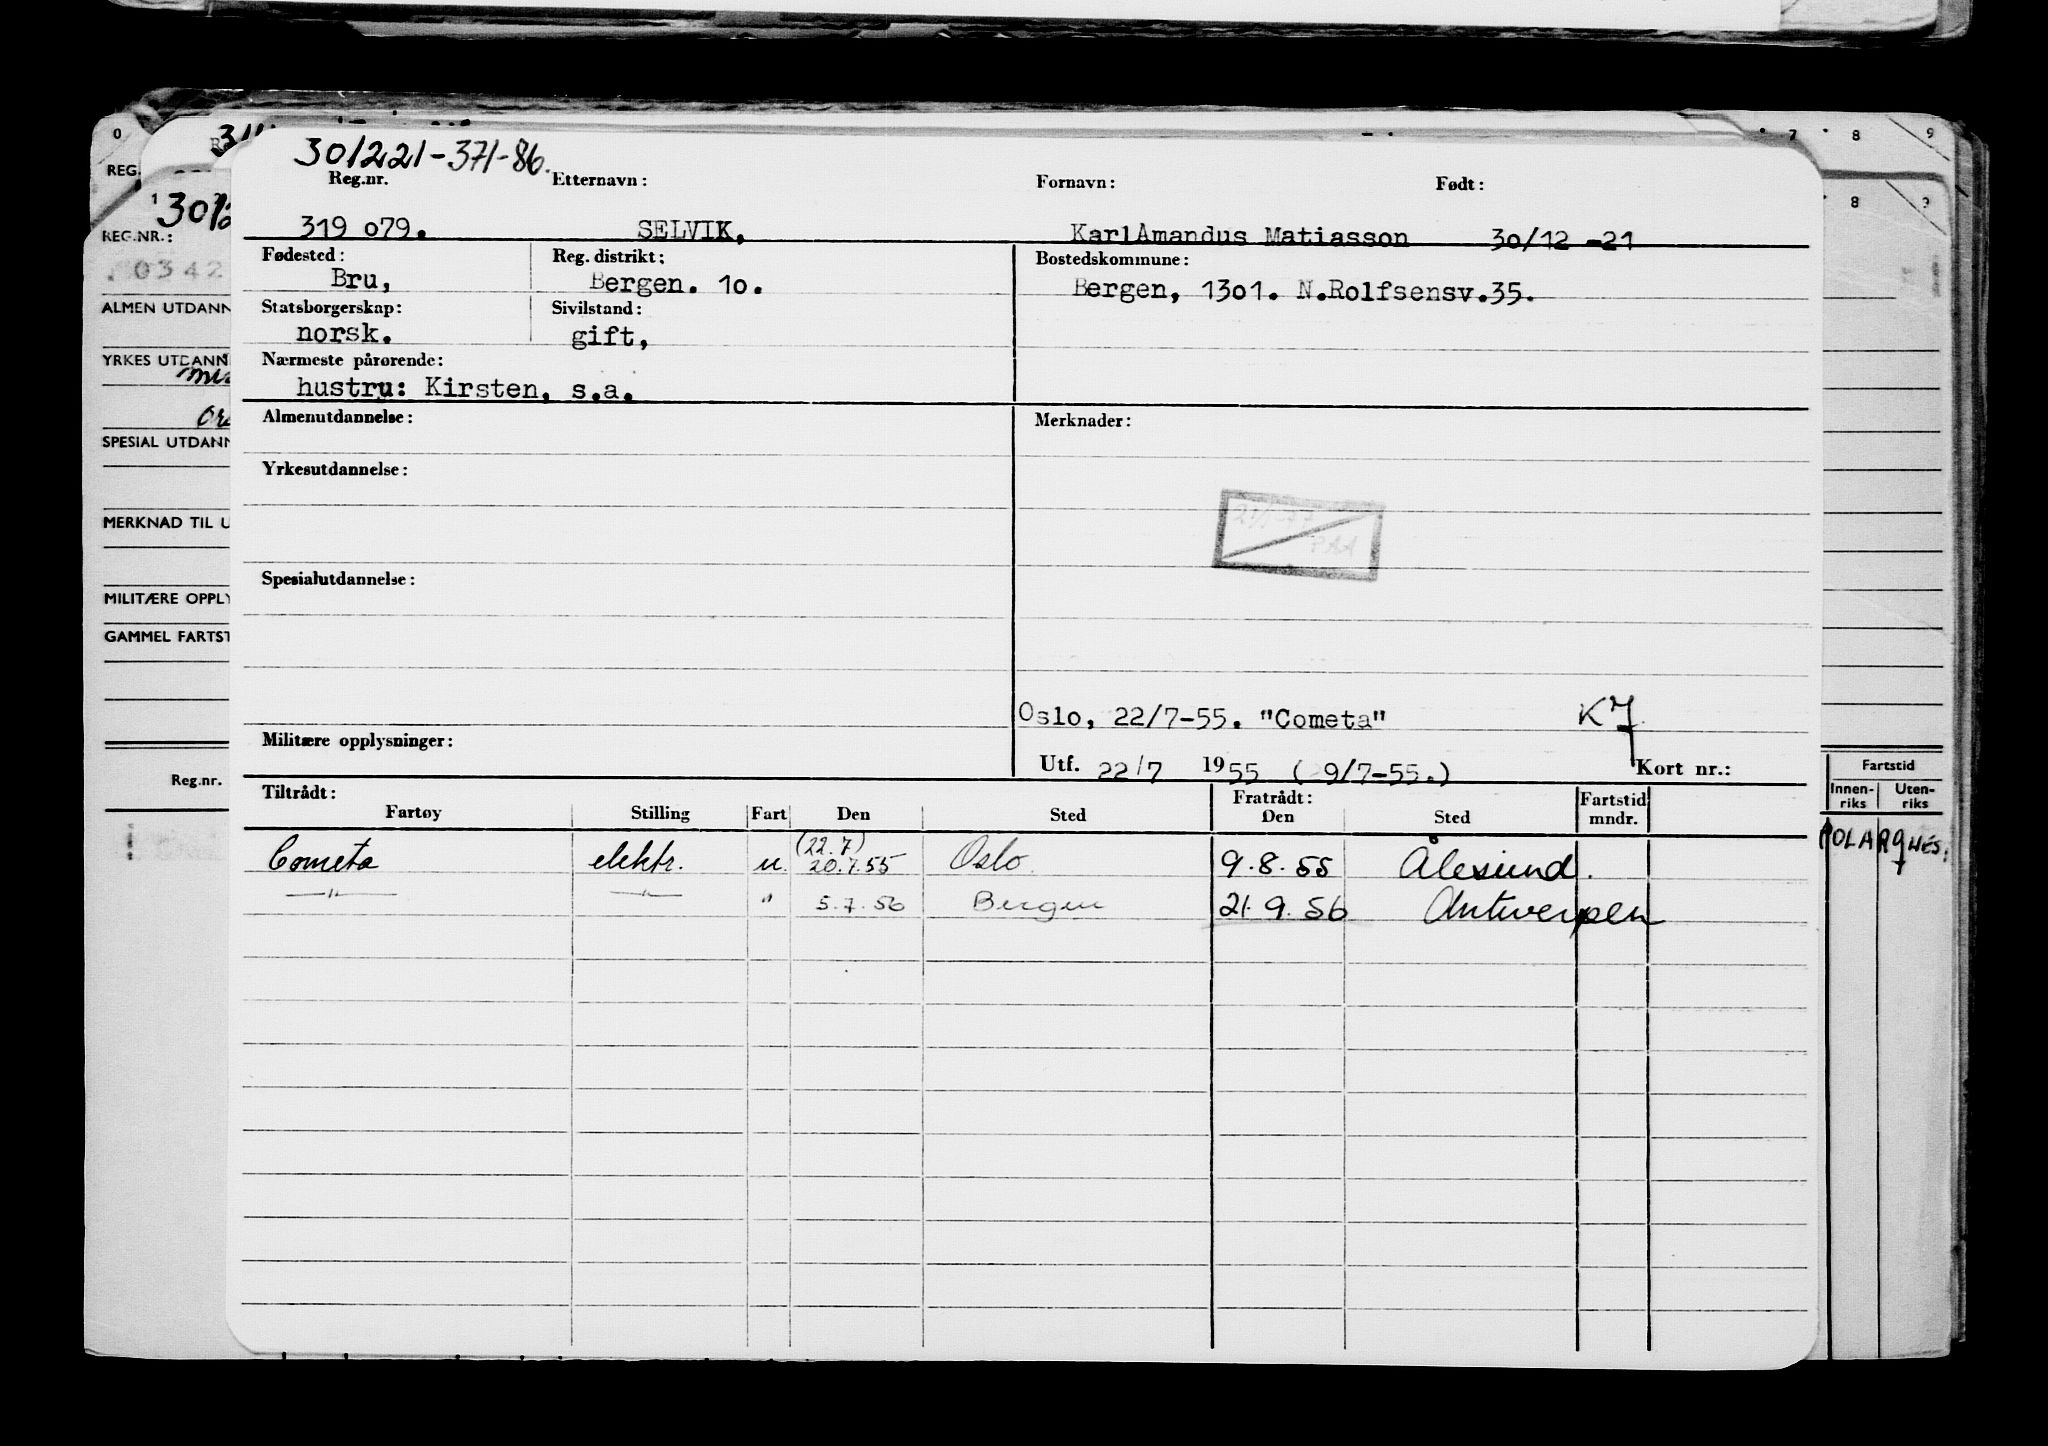 301221-371-86.
Reg.nr. Etternavn: Fornavn: Født:
319 o79. SELVIK, KarlAmandus Matiasson 30/12 -21
Fødested: Reg. distrikt: Bostedskommune:
Bru, Bergen. 10. Bergen, 1301. N.Rolfsensv.35.
Statsborgerskap: Sivilstand:
norsk. gift,
Nærmeste pårørende:
hustru: Kirsten, s.a.
Almenutdannelse: Merknader:
Yrkesutdannelse:
PAA
Spesialutdannelse:
Oslo, 22/7-55. "Cometa" K7
Militære opplysninger:
Utf. 22/7 1955 ( 9/7-55.) Kort nr.:
Tiltrådt: Fratrådt: Fartstid
Fartøy Stilling Fart Den Sted Den Sted mndr.
(22.7)
Cometa elektr. u. 20.7.55 Oslo. 9.8.55 Ålesund.
—"— —"— " 5.7.56 Bergen 21.9.56 Antwerpen
0 7 8 9
REG.
1 8 9
REG.NR.:
0342
ALMEN UTDANN
YRKES UTDANN
SPESIAL UTDANN
MERKNAD TIL U
MILITÆRE OPPLY
GAMMEL FARTST
Reg.nr.
Fartstid
Innen-riks Uten-riks